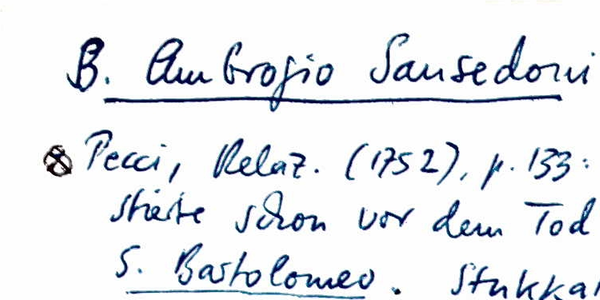 B. Ambrogio Sansedoni
Pecci, Relaz. (1752), p. 133:
stiftete schon vor dem Tod
S. Bartolomeo. Stukka